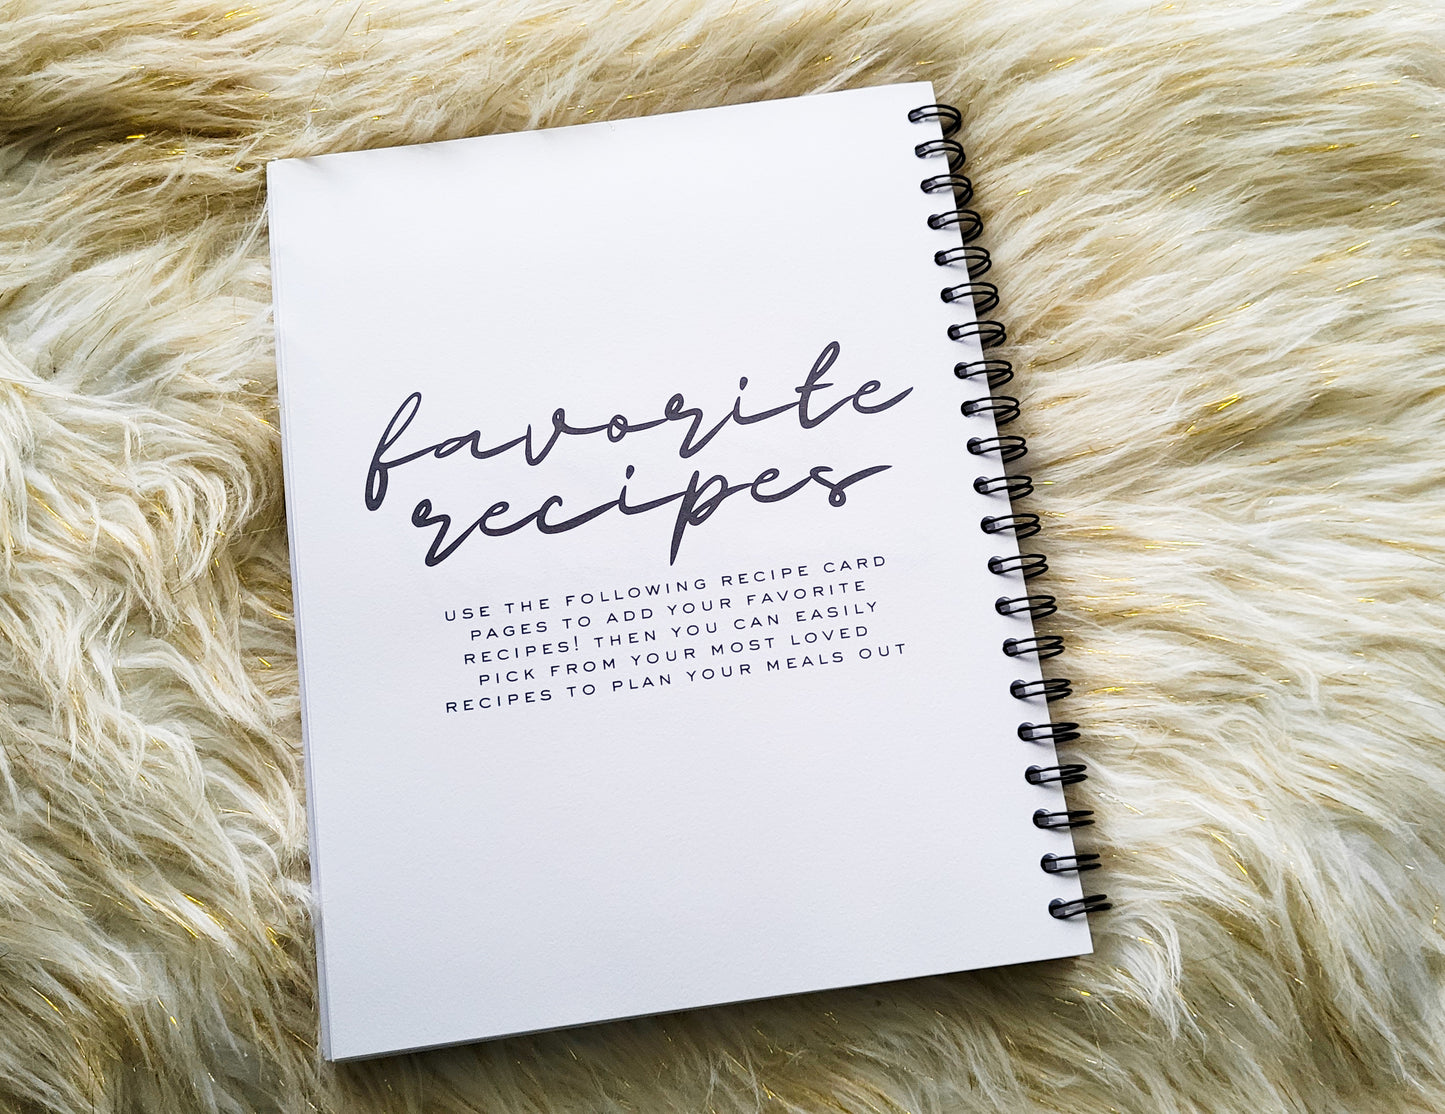 favorite
recipes
USE THE FOLLOWING RECIPE CARD
PAGES TO ADD YOUR FAVORITE
RECIPES! THEN YOU CAN EASILY
PICK FROM YOUR MOST LOVED
RECIPES TO PLAN YOUR MEALS OUT